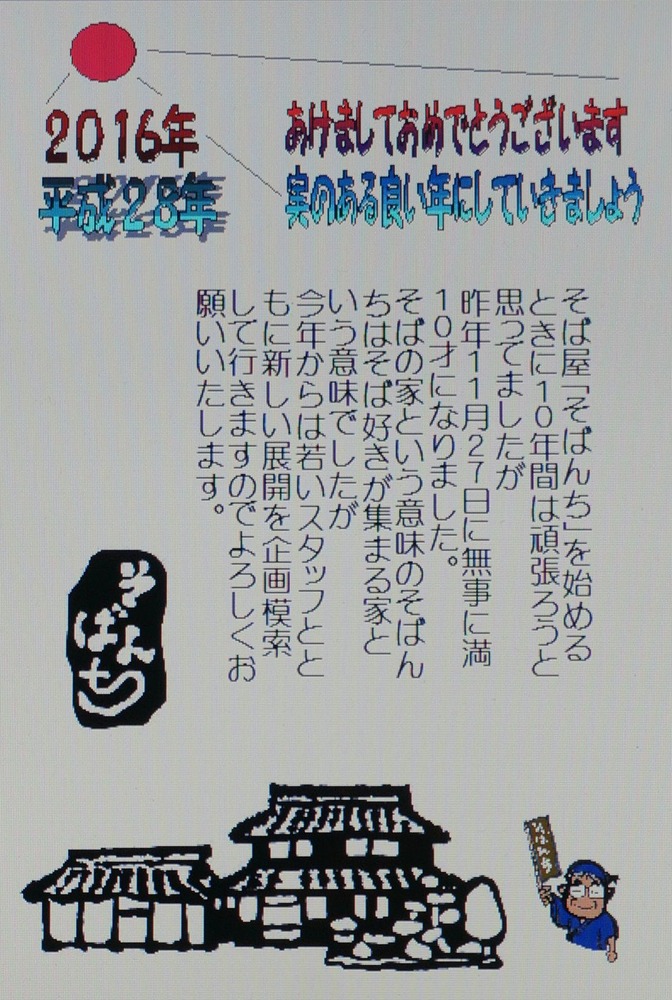 2016年
平成28年
あけましておめでとうございます
実のある良い年にしていきましょう
そば屋「そばんち」を始める
ときに10年間は頑張ろうと
思ってましたが
昨年11月27日に無事に満
10才になりました。
そばの家という意味のそばん
ちはそば好きが集まる家と
いう意味でしたが
今年からは若いスタッフとと
もに新しい展開を企画模索
して行きますのでよろしくお
願いいたします。
そばんち